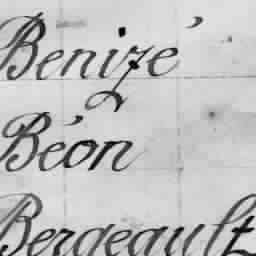 Benizé
Béon
Bergeault